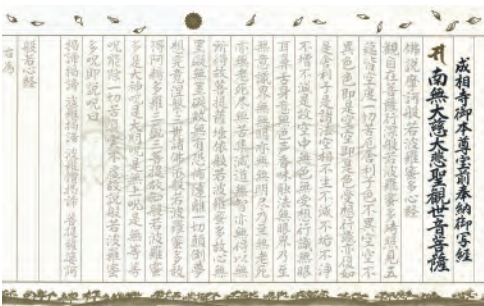 成相寺御本尊宝前奉納御写経
南無大慈大悲聖觀世音菩薩
佛説摩訶般若波羅蜜多心経
観自在菩薩行深般若波羅蜜多時照見五
蘊皆空度一切苦厄舎利子色不異空空不
異色色即是空空即是色受想行識亦復如
是舎利子是諸法空相不生不滅不垢不浄
不増不減是故空中無色無受想行識無眼
耳鼻舌身意無色声香味触法無眼界乃至
無意識界無無明亦無無明尽乃至無老死
亦無老死尽無苦集滅道無智亦無得以無
所得故菩提薩埵依般若波羅蜜多故心無
罣礙無罣礙故無有恐怖遠離一切顛倒夢
想究竟涅槃三世諸佛依般若波羅蜜多故
得阿耨多羅三藐三菩提故知般若波羅蜜
多是大神呪是大明呪是無上呪是無等等
呪能除一切苦真実不虚故説般若波羅蜜
多呪即説呪曰
羯諦羯諦 波羅羯諦 波羅僧羯諦 菩提薩婆訶
般若心経
右為